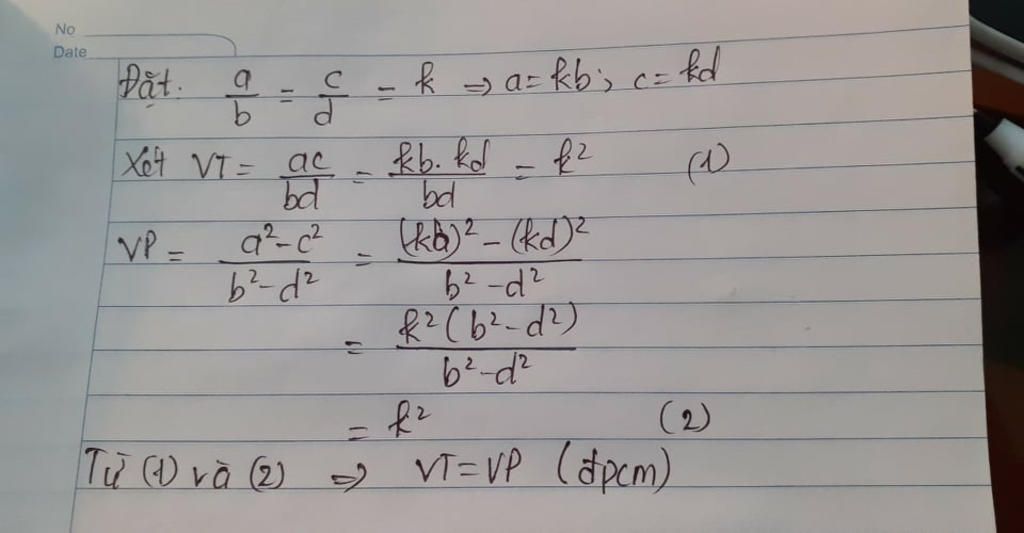 No
Date
Đặt. a/b = c/d = k => a = kb; c = kd
Xét VT = ac/bd = kb.kd/bd = k² (1)
VP = a²-c²/b²-d² = (kb)²-(kd)²/b²-d²
= k²(b²-d²)/b²-d²
= k² (2)
Từ (1) và (2) => VT = VP (đpcm)